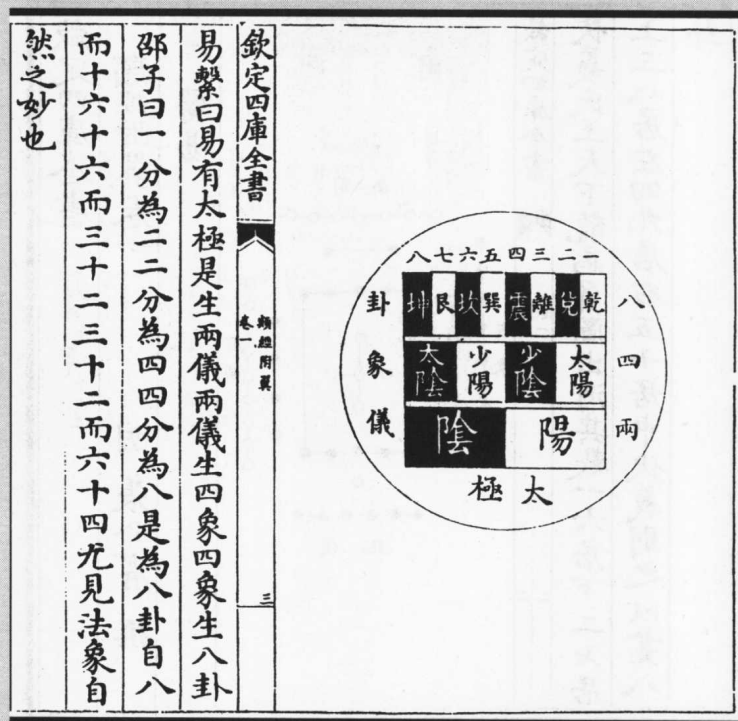 八七六五四三二一
八卦
乾兌離震巽坎艮坤
四象
太陽少陰少陽太陰
兩儀
陽陰
太極
欽定四庫全書
類經附翼
卷一
三
易繫曰易有太極是生兩儀兩儀生四象四象生八卦
邵子曰一分為二二分為四四分為八是為八卦自八
而十六十六而三十二三十二而六十四尤見法象自
然之妙也